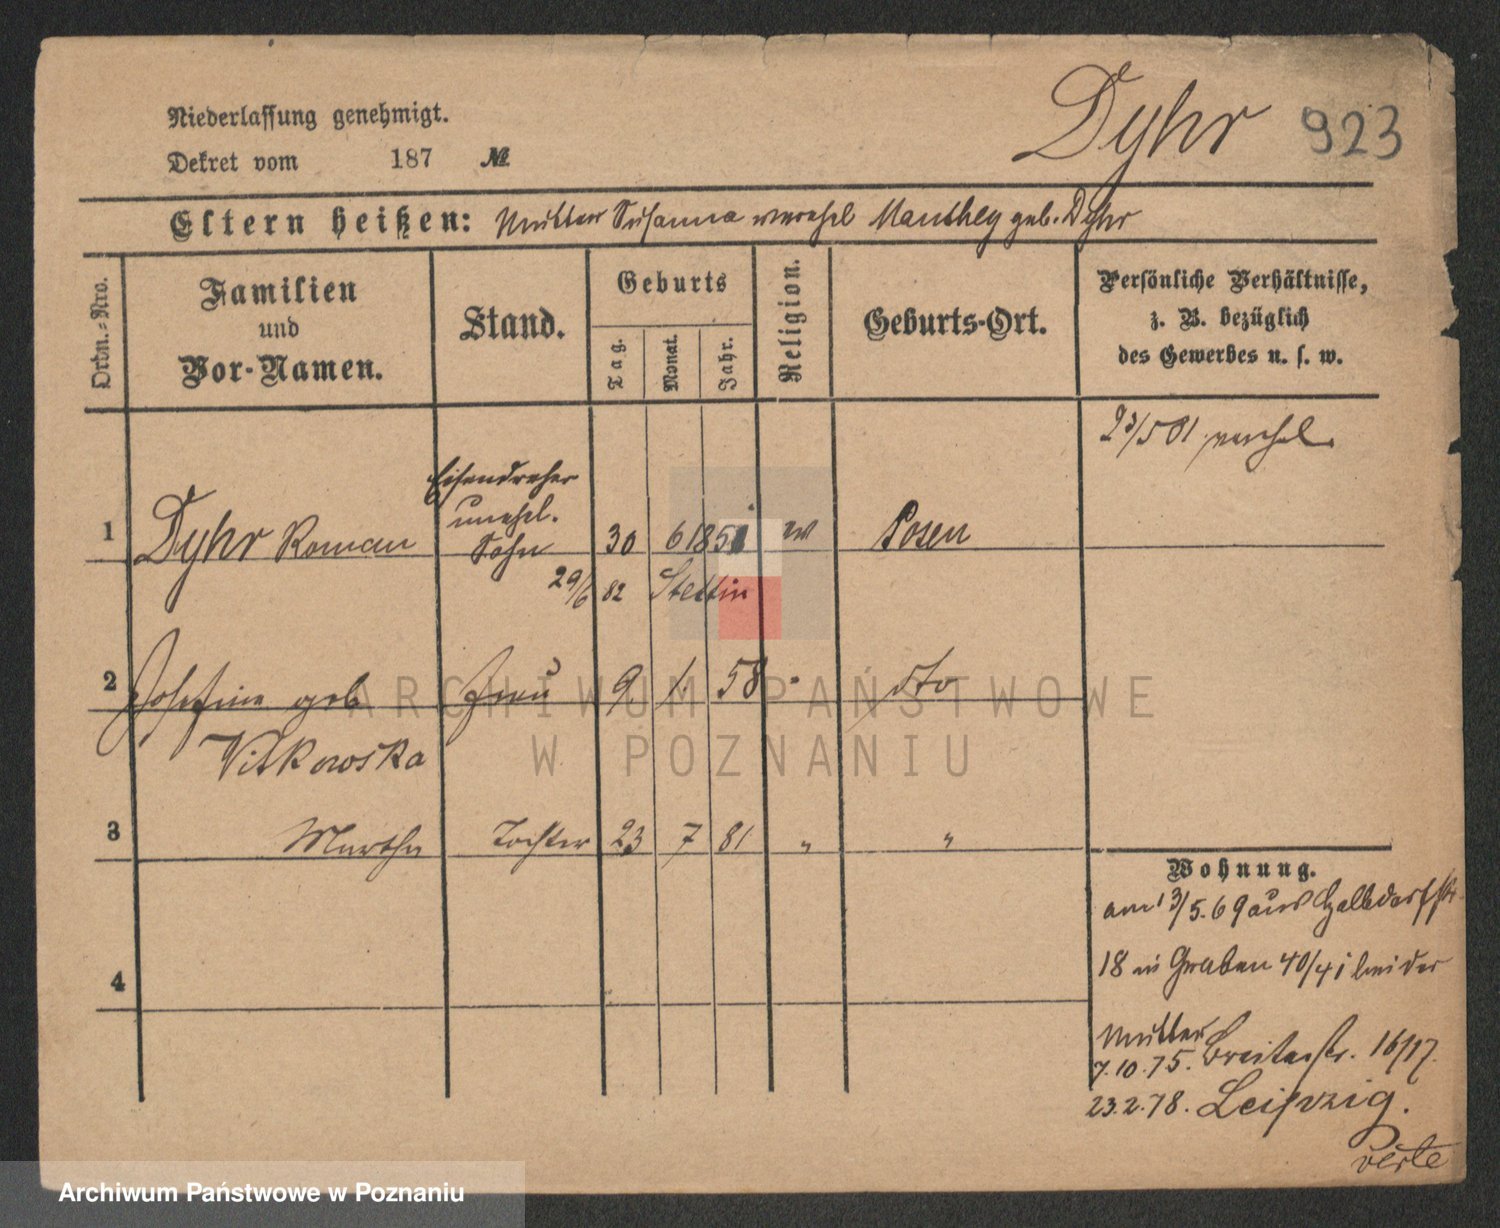 Dyhr 923
Niederlassung genehmigt.
Dekret vom 187 №
Eltern heißen: Mutter Susanna verehel Manthey geb. Dyhr
Ordn.-Nro.
Familien
und
Vor-Namen.
Stand.
Geburts
Tag.
Monat.
Jahr.
Religion.
Geburts-Ort.
Persönliche Verhältnisse,
z. B. bezüglich
des Gewerbes u. s. w.
23/5 81 verehel.
Eisendreher
unehel.
1 Dyhr Roman Sohn 30 6 1851 Posen
29/6 82 Stettin
2 Josefine geb Frau 9 1. 58 " dto
Vitkowska
3 Martha Tochter 23 7 81 " "
4
Wohnung.
am 13/5. 69 aus Halbdorfstr
18 in Graben 40/41 bei der
Mutter
7.10.75. Breitestr. 16/17.
23.2.78. Leipzig.
verte
ARCHIWUM PAŃSTWOWE
W POZNANIU
Archiwum Państwowe w Poznaniu